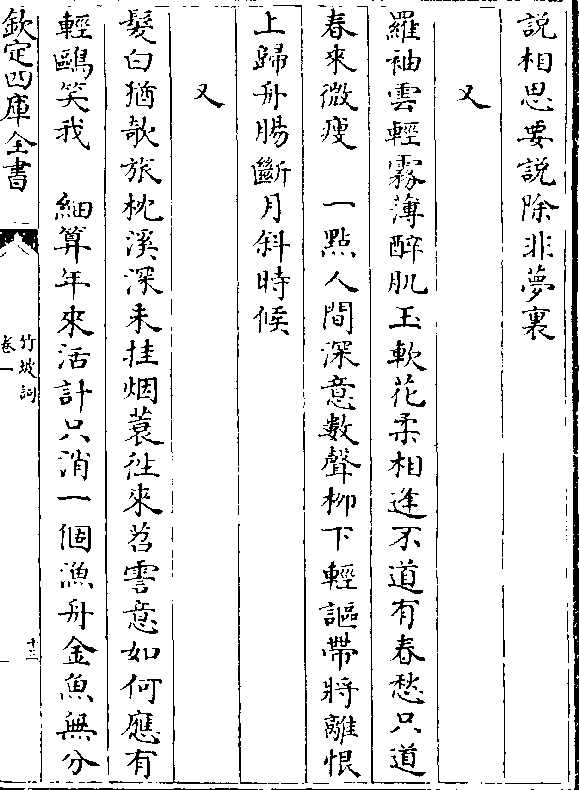 說相思要說除非夢裏
又
羅袖雲輕霧薄醉肌玉軟花柔相逢不道有春愁只道
春來微瘦　一點人間深意數聲柳下輕謳帶將離恨
上歸舟腸斷月斜時候
又
髮白猶欹旅枕溪深未挂烟蓑往來苕霅意如何應有
輕鷗笑我　細算年來活計只消一個漁舟金魚無分
欽定四庫全書
竹坡詞
卷一
十三